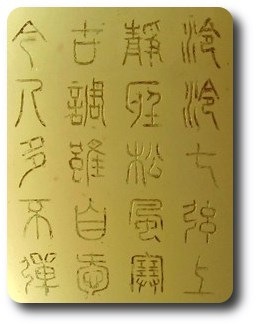 泠泠七弦上
靜聽松風寒
古調雖自愛
今人多不彈